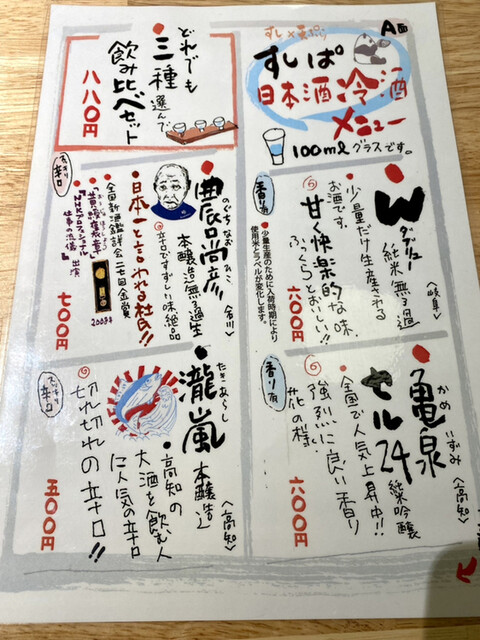 A面
すし×天ぷら
すしぱ
日本酒冷酒
メニュー
100mlグラスです。
どれでも
三種
選んで
飲み比べセット
八八〇円
香り有
W
ダブリュー
純米無ろ過
〈岐阜〉
・少量だけ生産される
お酒です。
甘く快楽的な味。
ふっくらとおいしい!!
●少量生産のために入荷時期により
使用米とラベルが変化します。
六〇〇円
スッキリ辛口
農口尚彦
のぐちなおひこ
〈石川〉
本醸造無ろ過生
辛口ですずしい味絶品
・日本一と言われる杜氏!!
全国新酒鑑評会二七回金賞
「黄綬褒章」
『NHKプロフェッショナル
仕事の流儀』出演
2008年
七〇〇円
香り有
亀泉
かめいずみ
〈高知〉
セル24
純米吟醸
・全国で人気上昇中!!
強烈に良い香り
花の様。
六〇〇円
スッキリ辛口
瀧嵐
たきあらし
本醸造
〈高知〉
・高知の
大酒を飲む人
に人気の辛口
切れ切れの辛口!!
五〇〇円